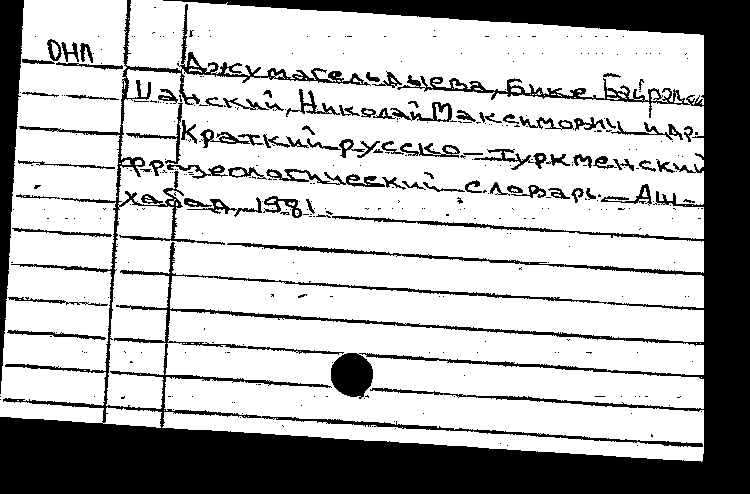 ОНЛ
Джумагельдыева, Бике.
Шанский, Николай Максимович и др.
Краткий русско-туркменский
фразеологический словарь. — Аш-
хабад, 1981.